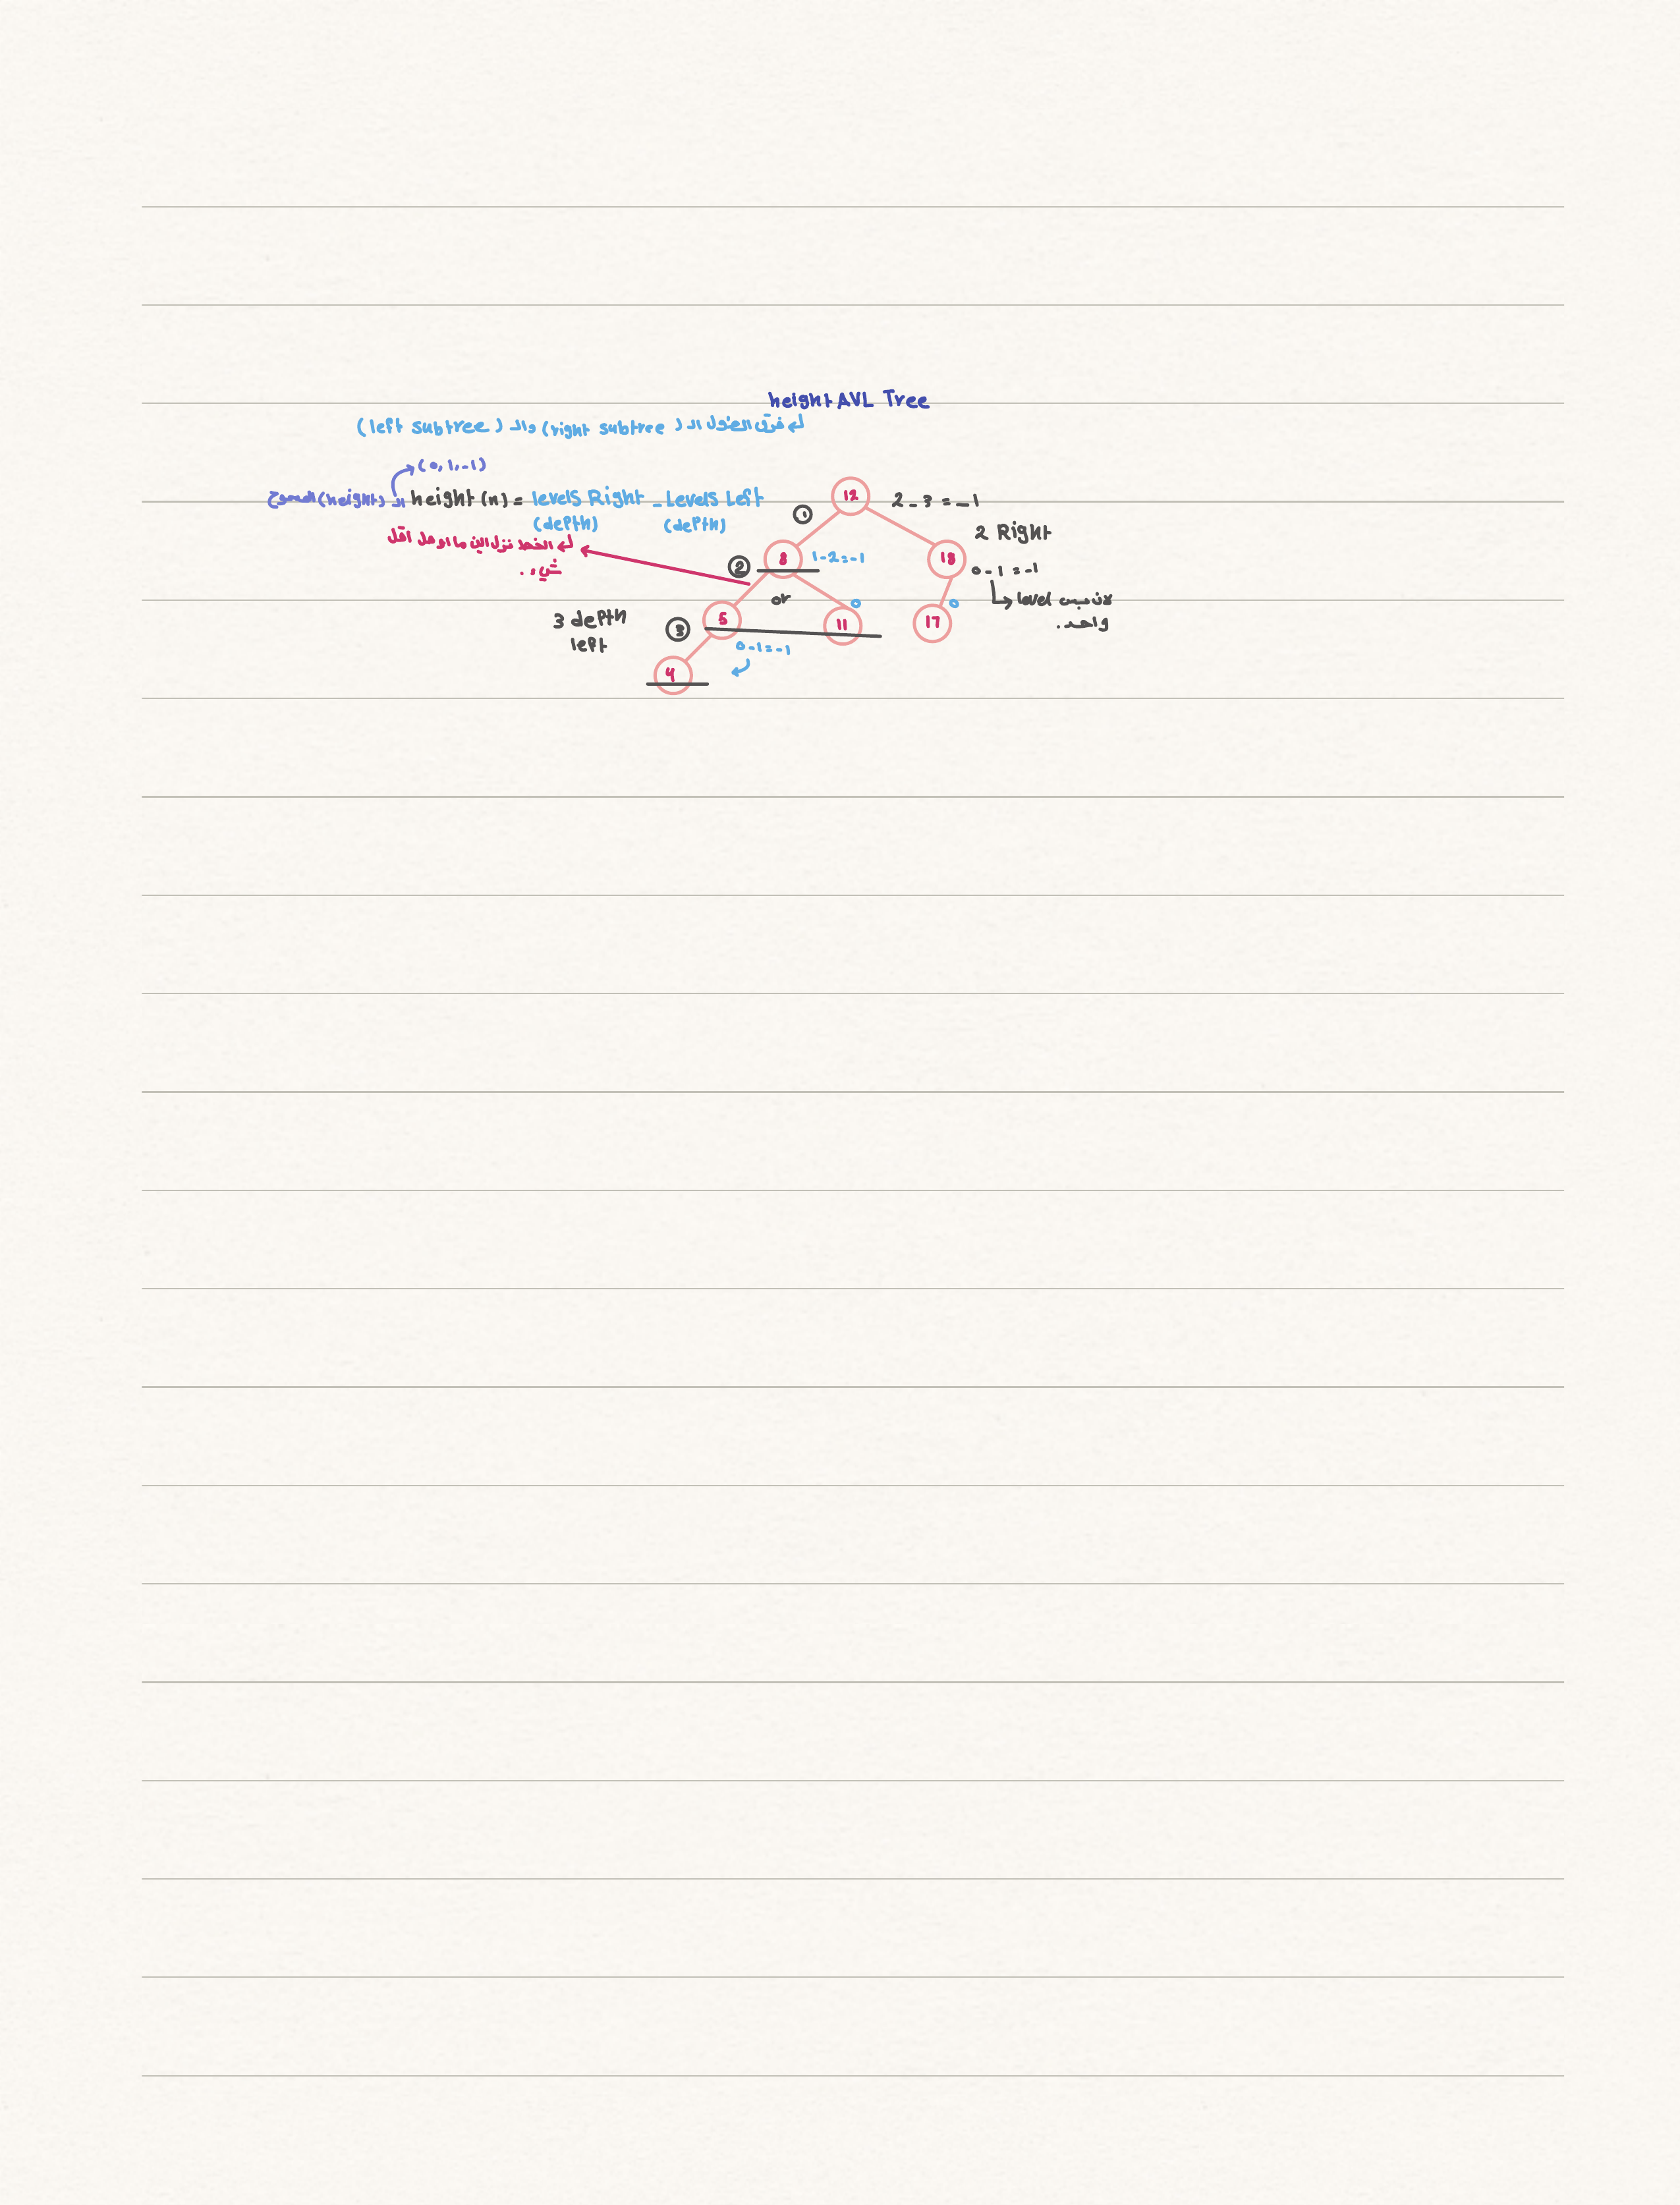 height AVL Tree
فرق الطول الـ (right subtree) والـ (left subtree)
(0, 1, -1)
الـ (height) المسموح
height (n) = levels Right - Levels Left
(depth) (depth)
لـ الخط نزل الين ما اوصل اقل
شيء.
12
2 - 3 = - 1
2 Right
1
8
1 - 2 = - 1
18
0 - 1 = - 1
level
واحد.
2
or
0
0
3 depth
left
3
5
11
17
0 - 1 = - 1
4